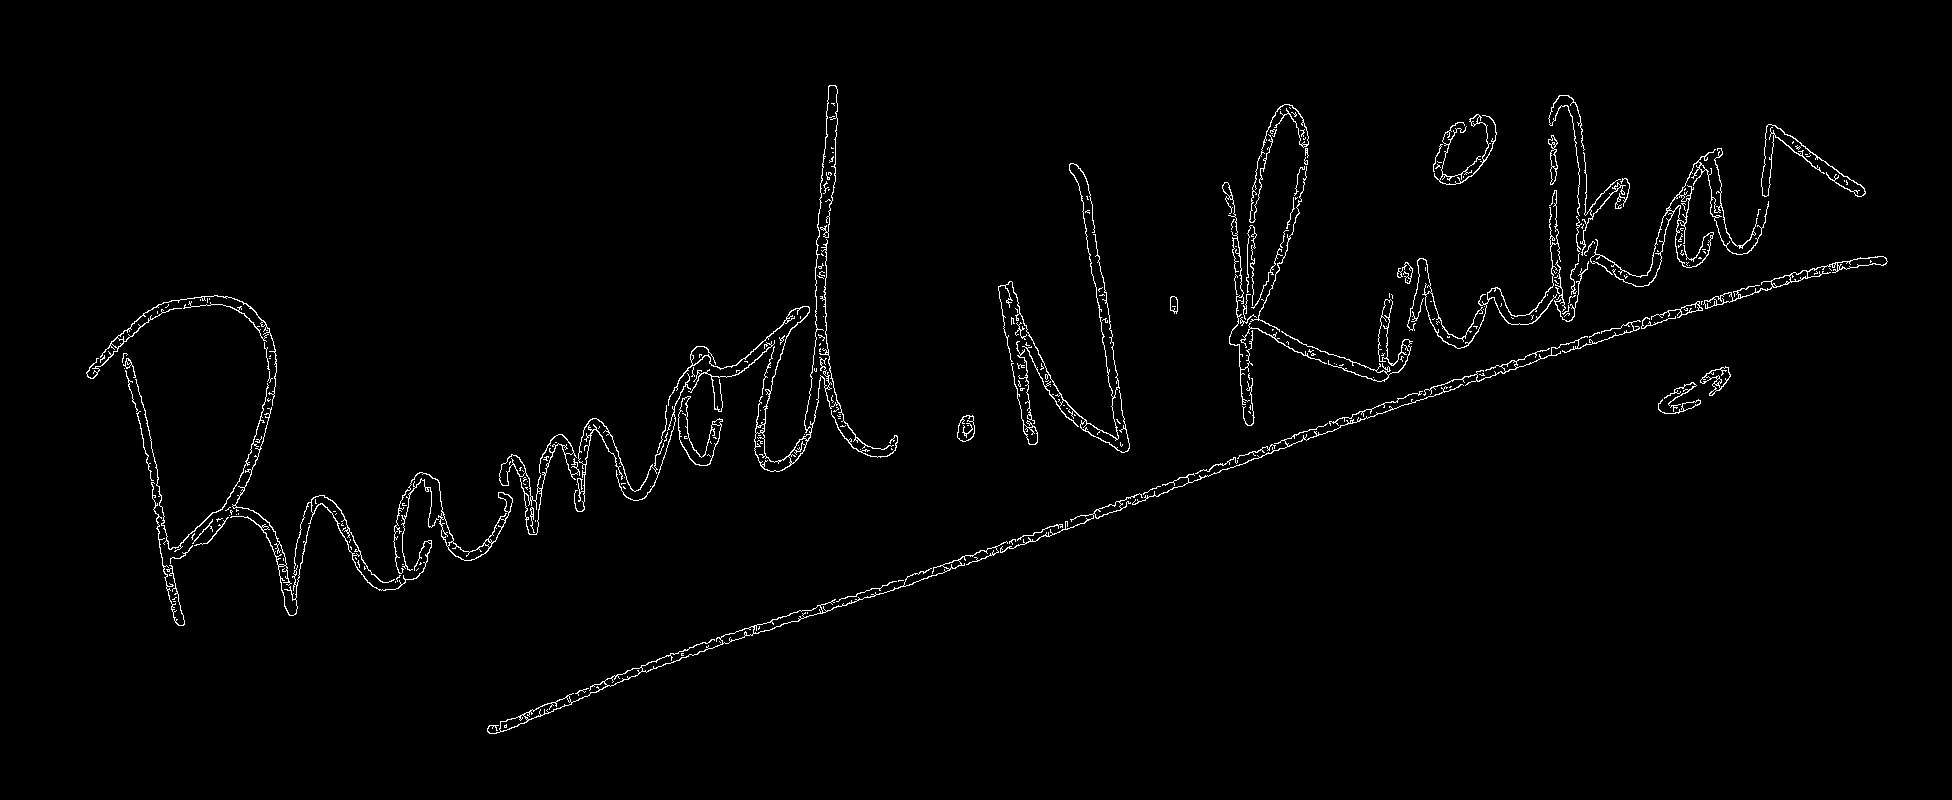 Pramod . N . Raikar